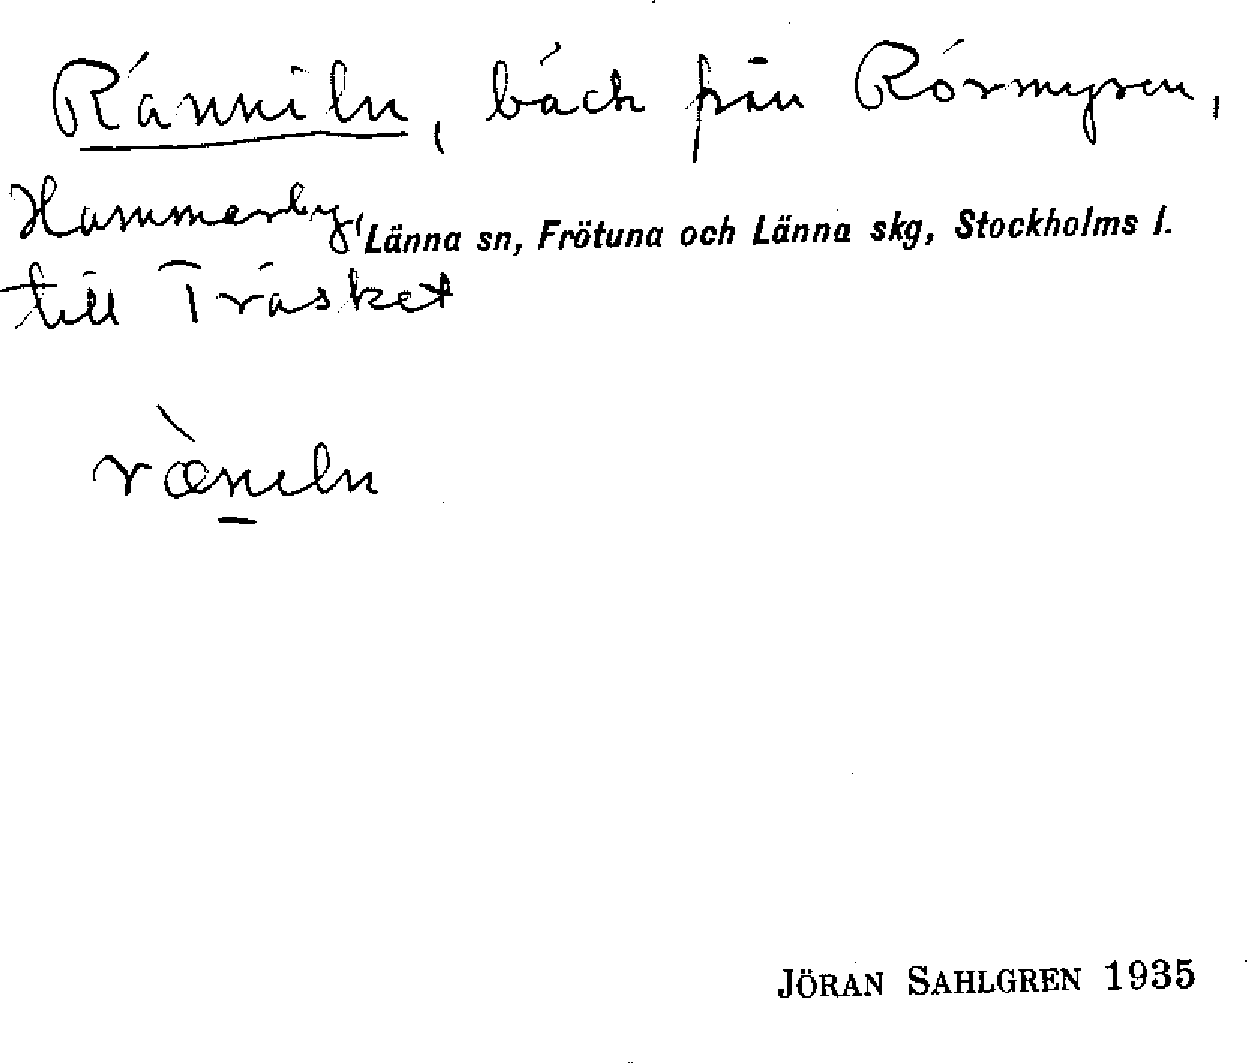 Ränniln, bäck från Rörmyren,
Hammarby, Länna sn, Frötuna och Länna skg, Stockholms l.
till Träsket
ræ̀niln
JÖRAN SAHLGREN 1935